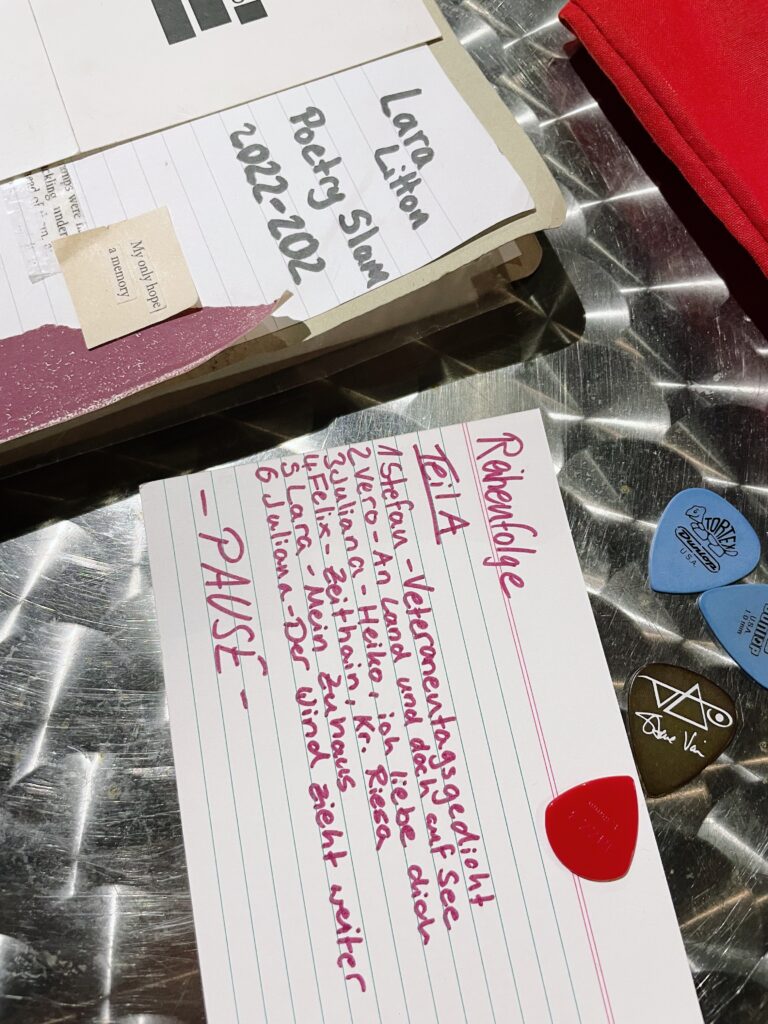 Lara
Litton
Poetry Slam
2022-202
My only hope
a memory
Rähenfolge
Teil A
1 Stefan - Veteranentagsgedicht
2 Vero - An Land und doch auf See
3 Juliana - Heiko, ich liebe dich
4 Felix - Zeithain, Kr. Riesa
5 Lara - Mein Zuhaus
6 Juliana - Der Wind zieht weiter
- PAUSE -
TORTEX
Dunlop
U.S.A
DUNLOP
USA
1.0 mm
Steve Vai